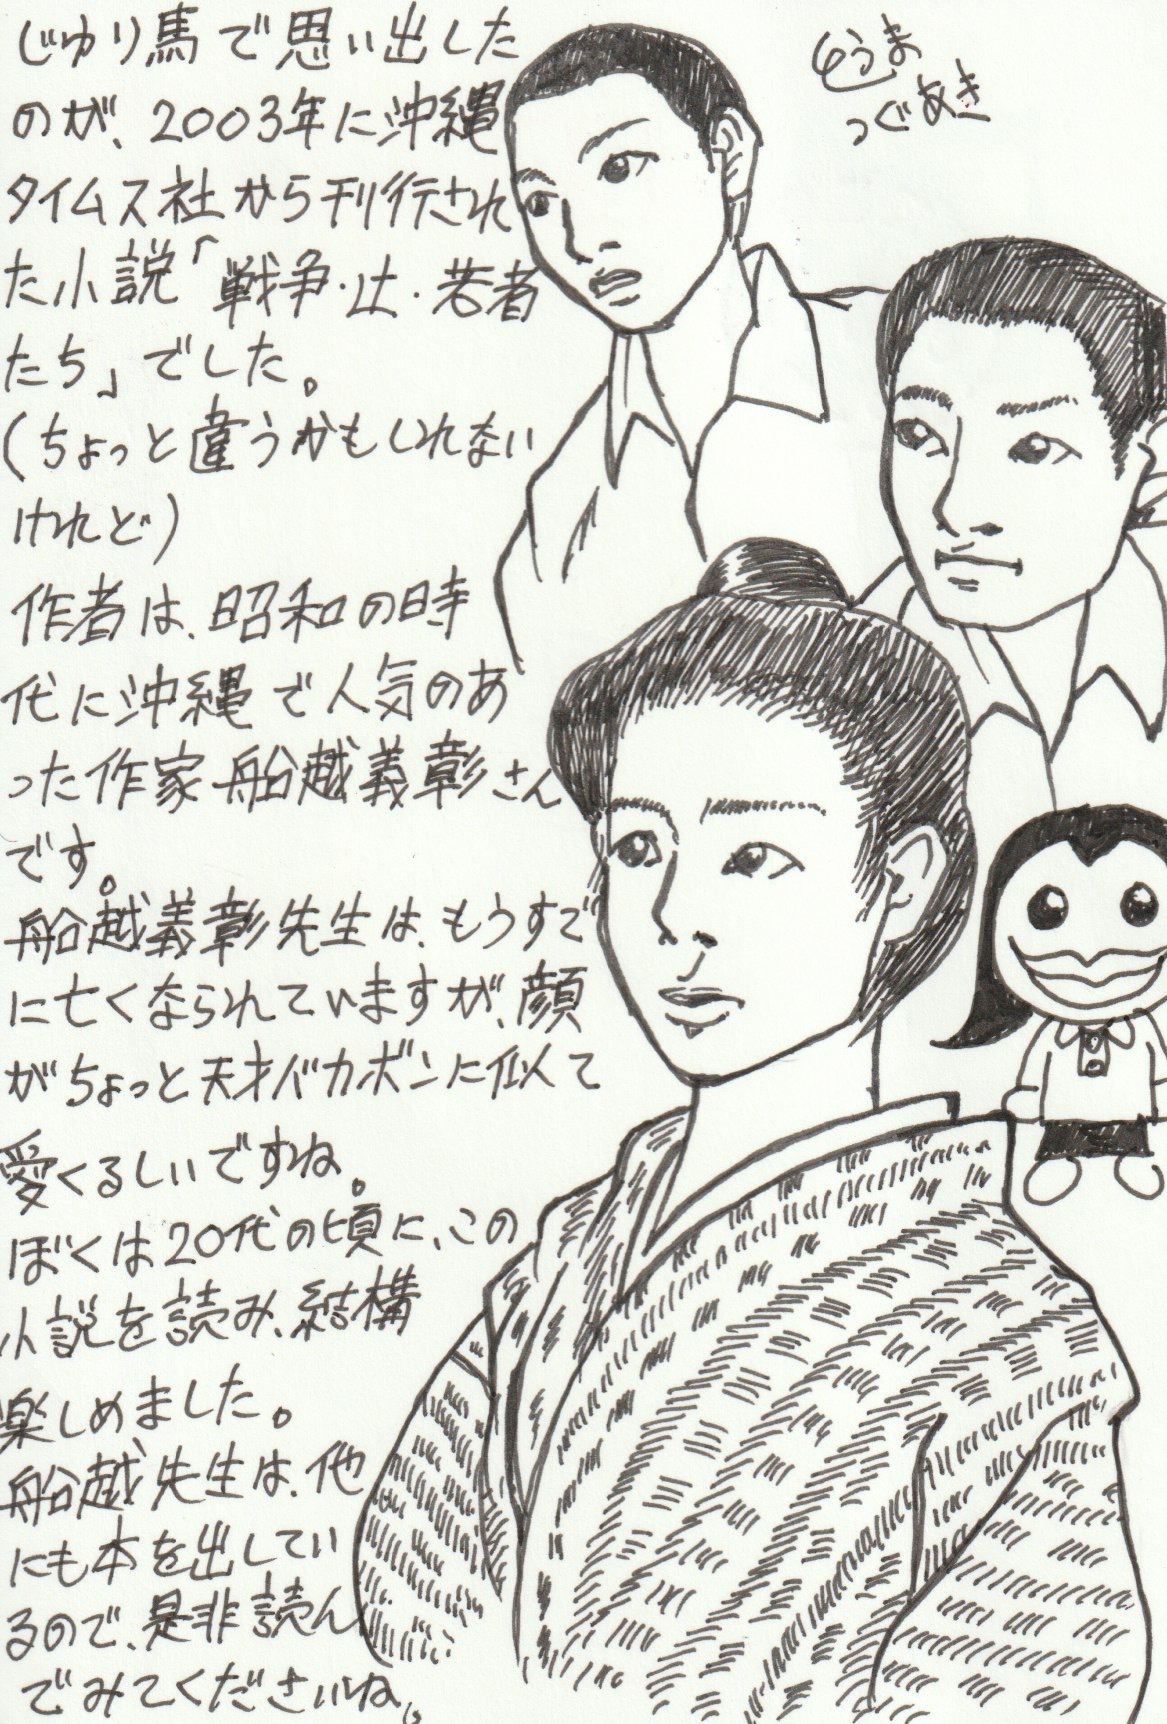 じゅり馬で思い出した
のが、2003年に沖縄
タイムス社から刊行され
た小説「戦争・辻・若者
たち」でした。
(ちょっと違うかもしれない
けれど)
作者は、昭和の時
代に沖縄で人気のあ
った作家船越義彰さん
です。
船越義彰先生は、もうすで
に亡くなられていますが、顔
がちょっと天才バカボンに似て
愛くるしいですね。
ぼくは20代の頃に、この
小説を読み、結構
楽しめました。
船越先生は、他
にも本を出してい
るので、是非読ん
でみてくださいね。
とうま
つぐあき